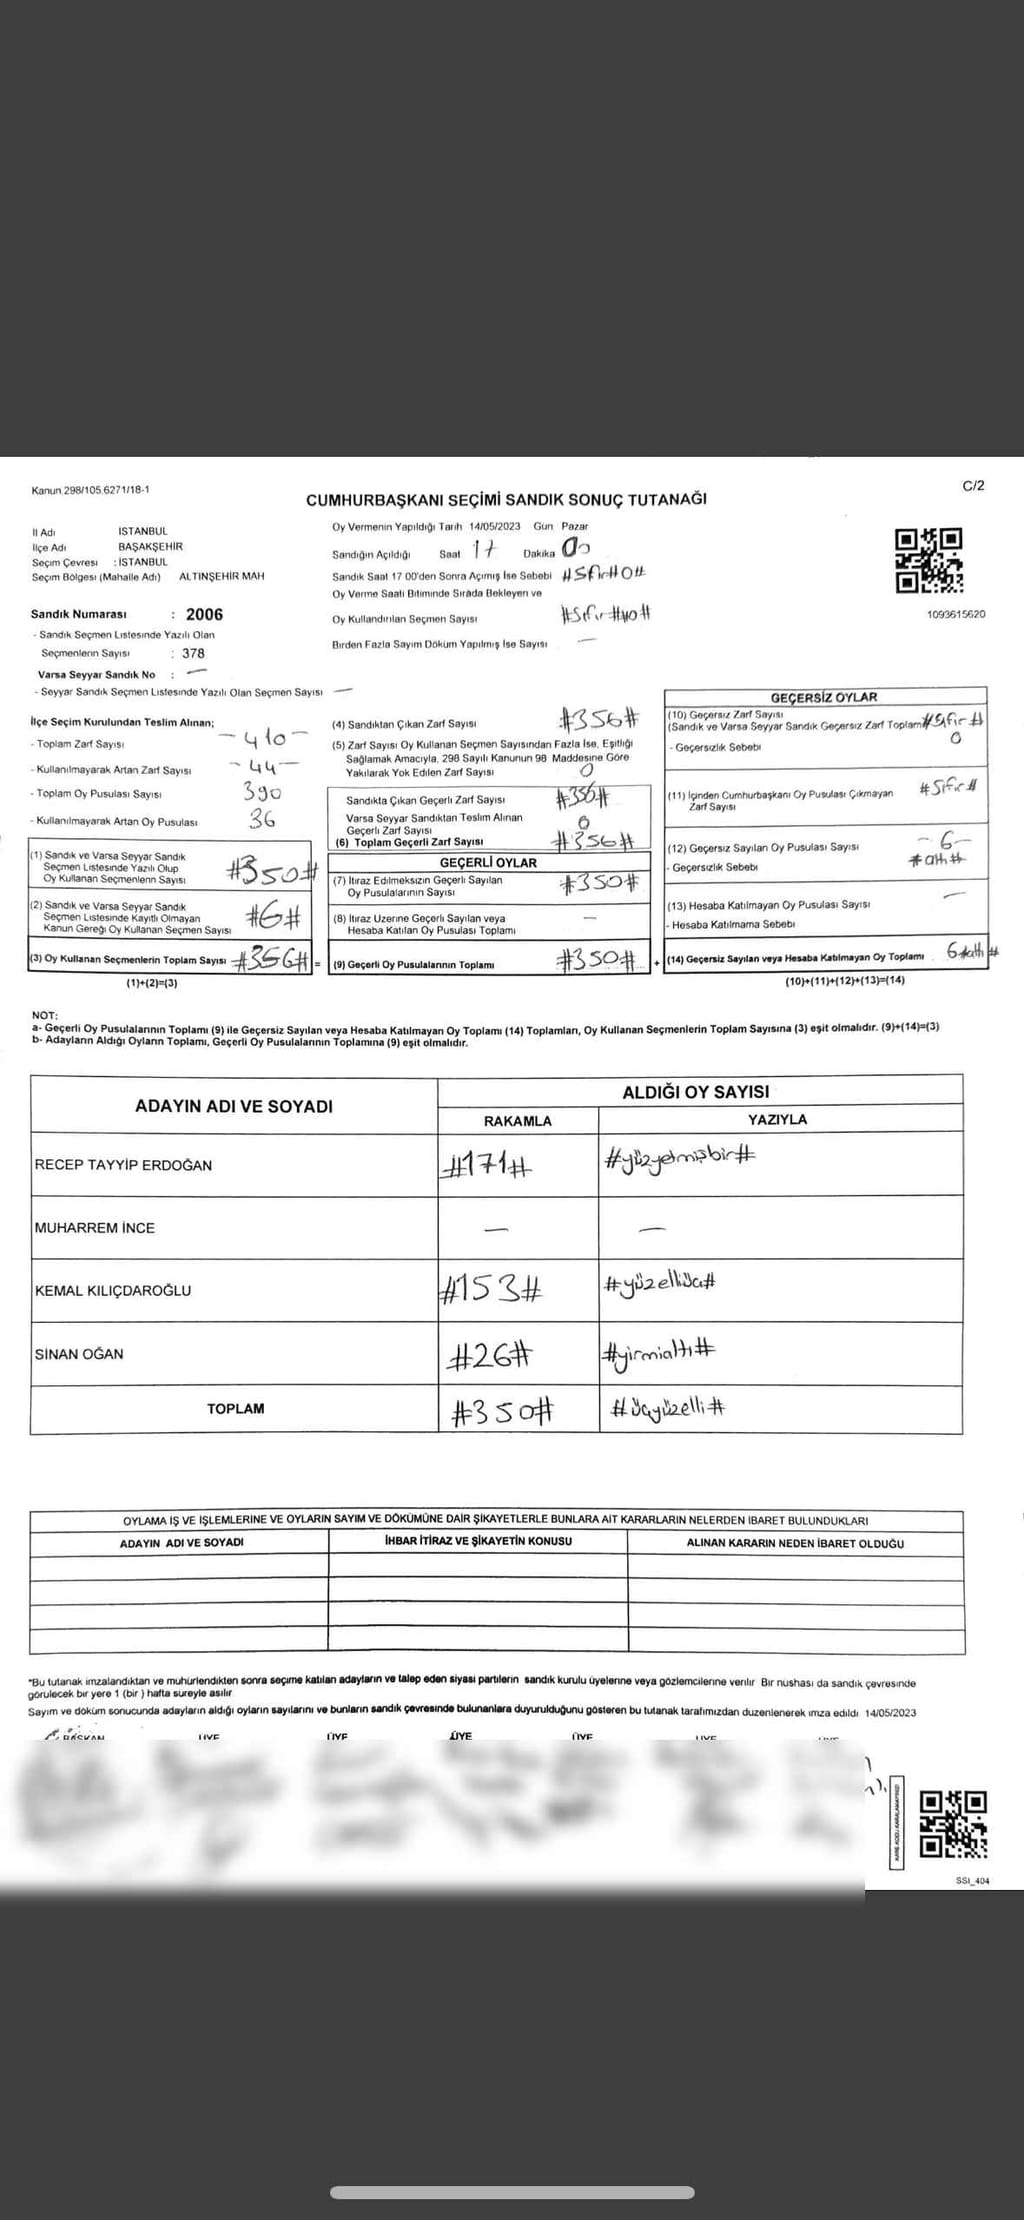 Kanun 298/105 6271/18-1
C/2
CUMHURBAŞKANI SEÇİMİ SANDIK SONUÇ TUTANAĞI
İl Adı İSTANBUL
İlçe Adı BAŞAKŞEHİR
Seçim Çevresi : İSTANBUL
Seçim Bölgesi (Mahalle Adı) ALTINŞEHİR MAH
Sandık Numarası : 2006
- Sandık Seçmen Listesinde Yazılı Olan
Seçmenlerin Sayısı : 378
Varsa Seyyar Sandık No : —
- Seyyar Sandık Seçmen Listesinde Yazılı Olan Seçmen Sayısı —
Oy Vermenin Yapıldığı Tarih 14/05/2023 Gün Pazar
Sandığın Açıldığı Saat 17 Dakika 00
Sandık Saat 17 00'den Sonra Açımış İse Sebebi #Sıfır#0#
Oy Verme Saati Bitiminde Sırada Bekleyen ve
Oy Kullandırılan Seçmen Sayısı #Sıfır#
Birden Fazla Sayım Döküm Yapılmış İse Sayısı —
1093615620
İlçe Seçim Kurulundan Teslim Alınan;
- Toplam Zarf Sayısı -410-
- Kullanılmayarak Artan Zarf Sayısı -44-
- Toplam Oy Pusulası Sayısı 390
- Kullanılmayarak Artan Oy Pusulası 36
(1) Sandık ve Varsa Seyyar Sandık
Seçmen Listesinde Yazılı Olup
Oy Kullanan Seçmenlerin Sayısı #350#
(2) Sandık ve Varsa Seyyar Sandık
Seçmen Listesinde Kayıtlı Olmayan
Kanun Gereği Oy Kullanan Seçmen Sayısı #6#
(3) Oy Kullanan Seçmenlerin Toplam Sayısı #356# =
(1)+(2)=(3)
(4) Sandıktan Çıkan Zarf Sayısı #356#
(5) Zarf Sayısı Oy Kullanan Seçmen Sayısından Fazla İse, Eşitliği
Sağlamak Amacıyla, 298 Sayılı Kanunun 98 Maddesine Göre
Yakılarak Yok Edilen Zarf Sayısı 0
Sandıkta Çıkan Geçerli Zarf Sayısı #356#
Varsa Seyyar Sandıktan Teslim Alınan
Geçerli Zarf Sayısı 0
(6) Toplam Geçerli Zarf Sayısı #356#
GEÇERLİ OYLAR
(7) İtiraz Edilmeksizin Geçerli Sayılan
Oy Pusulalarının Sayısı #350#
(8) İtiraz Üzerine Geçerli Sayılan veya
Hesaba Katılan Oy Pusulası Toplamı —
(9) Geçerli Oy Pusulalarının Toplamı #350# +
GEÇERSİZ OYLAR
(10) Geçersiz Zarf Sayısı
(Sandık ve Varsa Seyyar Sandık Geçersiz Zarf Toplamı #Sıfır#
0
- Geçersizlik Sebebi
(11) İçinden Cumhurbaşkanı Oy Pusulası Çıkmayan #Sıfır#
Zarf Sayısı
(12) Geçersiz Sayılan Oy Pusulası Sayısı -6-
#altı#
- Geçersizlik Sebebi
(13) Hesaba Katılmayan Oy Pusulası Sayısı —
- Hesaba Katılmama Sebebi
(14) Geçersiz Sayılan veya Hesaba Katılmayan Oy Toplamı 6#altı#
(10)+(11)+(12)+(13)=(14)
NOT:
a- Geçerli Oy Pusulalarının Toplamı (9) ile Geçersiz Sayılan veya Hesaba Katılmayan Oy Toplamı (14) Toplamları, Oy Kullanan Seçmenlerin Toplam Sayısına (3) eşit olmalıdır. (9)+(14)=(3)
b- Adayların Aldığı Oyların Toplamı, Geçerli Oy Pusulalarının Toplamına (9) eşit olmalıdır.
ADAYIN ADI VE SOYADI
ALDIĞI OY SAYISI
RAKAMLA YAZIYLA
RECEP TAYYİP ERDOĞAN #171# #yüzyetmişbir#
MUHARREM İNCE — —
KEMAL KILIÇDAROĞLU #153# #yüzelliüç#
SİNAN OĞAN #26# #yirmialtı#
TOPLAM #350# #üçyüzelli#
OYLAMA İŞ VE İŞLEMLERİNE VE OYLARIN SAYIM VE DÖKÜMÜNE DAİR ŞİKAYETLERLE BUNLARA AİT KARARLARIN NELERDEN İBARET BULUNDUKLARI
ADAYIN ADI VE SOYADI İHBAR İTİRAZ VE ŞİKAYETİN KONUSU ALINAN KARARIN NEDEN İBARET OLDUĞU
*Bu tutanak imzalandıktan ve mühürlendikten sonra seçime katılan adayların ve talep eden siyasi partilerin sandık kurulu üyelerine veya gözlemcilerine verilir Bir nüshası da sandık çevresinde
görülecek bir yere 1 (bir ) hafta süreyle asılır
Sayım ve döküm sonucunda adayların aldığı oyların sayılarını ve bunların sandık çevresinde bulunanlara duyurulduğunu gösteren bu tutanak tarafımızdan düzenlenerek imza edildi 14/05/2023
BAŞKAN ÜYE ÜYE ÜYE ÜYE ÜYE
SSI_404